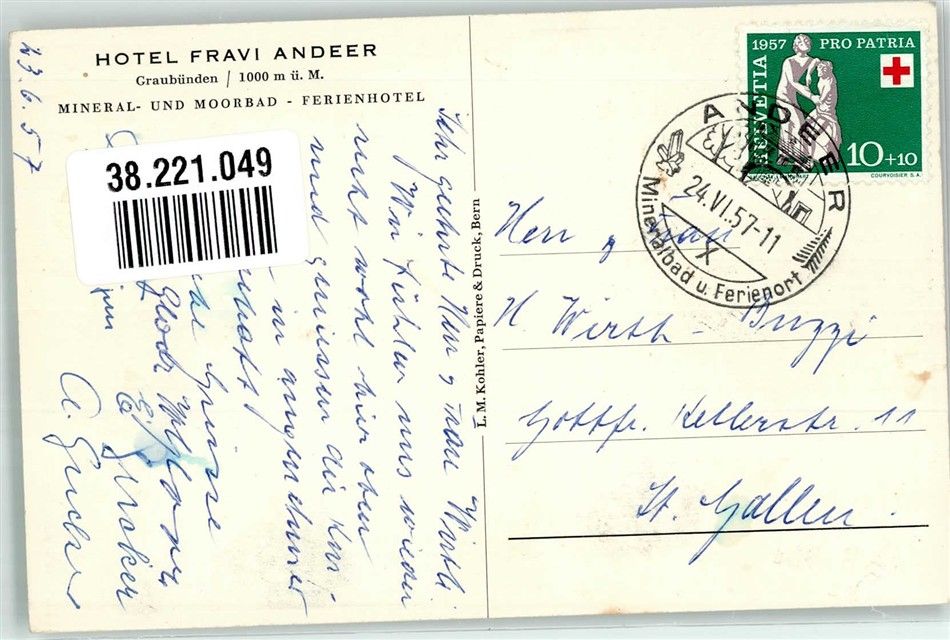 HOTEL FRAVI ANDEER
Graubünden / 1000 m ü. M.
MINERAL- UND MOORBAD - FERIENHOTEL
23.6.57
38.221.049
Sehr geehrte Herr & Frau Wirth
Wir fühlen uns wieder
recht wohl hier oben
und geniessen die Kur
in angenehmer
Grüsse
E. Gucker
A. Gucker
L. M. Kohler, Papiere & Druck, Bern
1957 PRO PATRIA
HELVETIA
10+10
COURVOISIER S.A.
ANDEER
24.VI.57-11
X
Mineralbad u. Ferienort
Herr & Frau
H Wirth - Buzzi
Gottfr. Kellerstr. 11
St. Gallen.